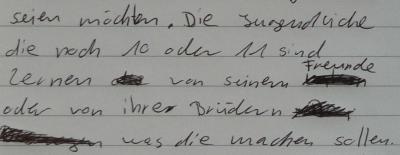 seien möchten. Die Jugendliche
die noch 10 oder 11 sind
lernen von seinem Freunde
oder von ihrer Brüdern
was die machen sollen.